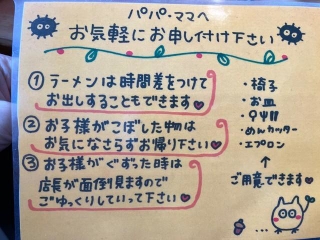 パパ・ママへ
お気軽にお申し付け下さい
① ラーメンは時間差をつけて
お出しすることもできます
② お子様がこぼした物は
お気になさらずお帰り下さい
③ お子様がぐずった時は
店長が面倒見ますので
ごゆっくりしていって下さい
・椅子
・お皿
・めんカッター
・エプロン
↑
ご用意できます
...